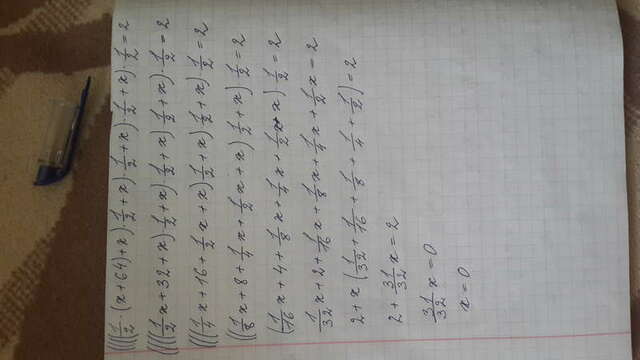 (((((1/2 · (x+64)+x) · 1/2 + x) · 1/2 + x) · 1/2 + x) · 1/2 = 2
((((1/2 x + 32 + x) · 1/2 + x) · 1/2 + x) 1/2 + x) · 1/2 = 2
(((1/4 x + 16 + 1/2 x + x) 1/2 + x) 1/2 + x) · 1/2 = 2
((1/8 x + 8 + 1/4 x + 1/2 x + x) 1/2 + x) 1/2 = 2
(1/16 x + 4 + 1/8 x + 1/4 x + 1/2 x + x) 1/2 = 2
1/32 x + 2 + 1/16 x + 1/8 x + 1/4 x + 1/2 x = 2
2 + x (1/32 + 1/16 + 1/8 + 1/4 + 1/2) = 2
2 + 31/32 x = 2
31/32 x = 0
x = 0